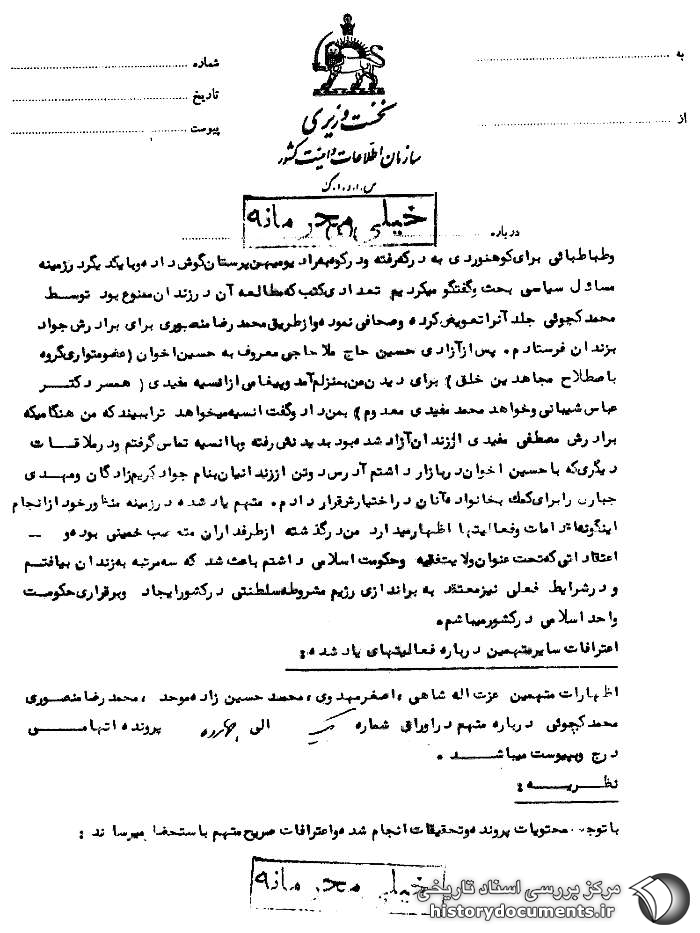 به
شماره
تاریخ
از
پیوست
نخست وزیری
سازمان اطلاعات و امنیت کشور
س.ا.و.ا.ک
خیلی محرمانه
درباره
وطباطبائی برای کوهنوردی به درکه رفته ودرکوه به رادیو میهن پرستان گوش داده وبا یکدیگر درزمینه
مسائل سیاسی بحث وگفتگو میکردیم تعدادی کتب که مطالعه آن درزندان ممنوع بود توسط
محمد کچوئی جلد آنرا تعویض کرده وصحافی نموده واز طریق محمد رضا منصوری برای برادرش جواد
بزندان فرستادم. پس از آزادی حسین حاج ملا حاجی معروف به حسین اخوان (عضو متواری گروه
باصطلاح مجاهدین خلق) برای دیدن من بمنزلم آمد وپیغامی از انسیه مفیدی (همسر دکتر
عباس شیبانی وخواهد محمد مفیدی معدوم) بمن داد وگفت انسیه میخواهد ترا ببیند که من هنگامیکه
برادرش مصطفی مفیدی اززندان آزاد شده بود بدیدنش رفته وبا انسیه تماس گرفتم ودرملاقات
دیگری که با حسین اخوان دربازار داشتم آدرس دوتن اززندانیان بنام جواد کریم زادگان ومهدی
جباری رابرای کمک بخانواده آنان دراختیارش قرار دادم. متهم یاد شده درزمینه منظور خود از انجام
اینگونه اقدامات وفعالیتها اظهار میدارد من درگذشته ازطرفداران متعصب خمینی بوده و ــ
اعتقاداتی که تحت عنوان ولایت فقیه وحکومت اسلامی داشتم باعث شد که سه مرتبه به زندان بیافتم
ودرشرایط فعلی نیز معتقد به براندازی رژیم مشروطه سلطنتی درکشور ایجاد وبرقراری حکومت
واحد اسلامی درکشور میباشم.
اعترافات سایر متهمین درباره فعالیتهای یاد شده:
اظهارات متهمین عزت اله شاهی، اصغر مهدوی، محمد حسین زاده موحد، محمد رضا منصوری
محمد کچوئی درباره متهم در اوراق شماره یک الی چهارده پرونده اتهامی
درج وپیوست میباشد.
نظریه:
با توجه محتویات پرونده وتحقیقات انجام شده واعترافات صریح متهم باستحضار میرساند:
خیلی محرمانه
مرکز بررسی اسناد تاریخی
historydocuments.ir